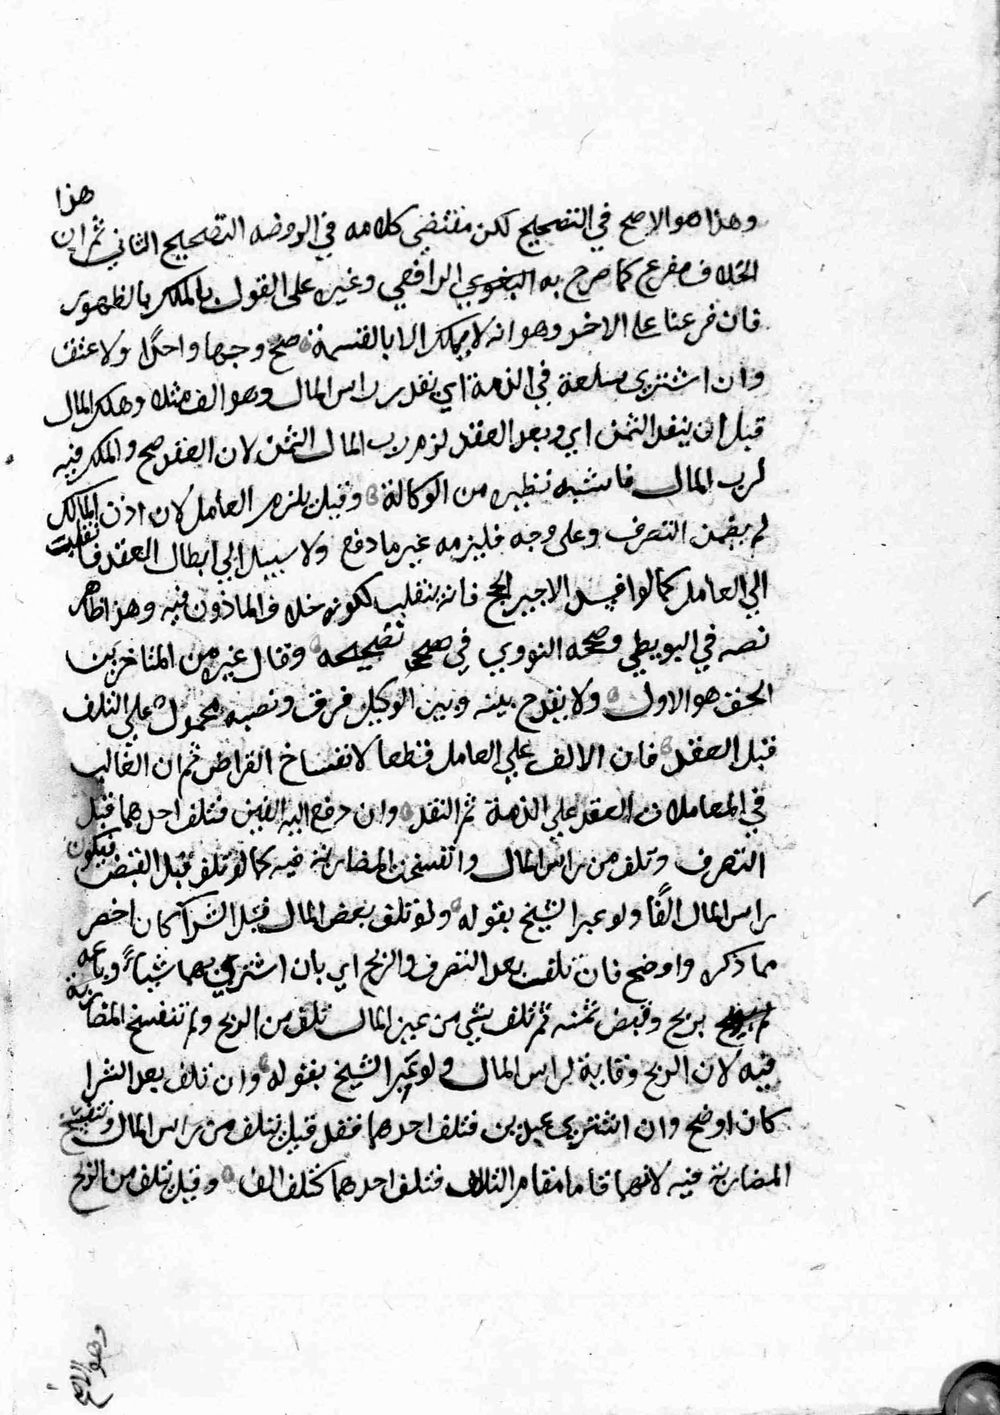 وهذا هو الاصح في التصحيح لكن مقتضي كلامه في الروضه التصحيح الثاني ثم ان هذا
الخلاف مفرع كما صرح به البغوي الرافعي وغيره على القول بالملك بالظهور
فان فرعنا على الاخر وهو انه لا يملك الا بالقسمة صح وجها واحدًا ولا عتق
وان اشتري سلعة في الذمة اي بقدر راس المال وهو الف مثلا وهلك المال
قبل ان ينقد الثمن اي وبعد العقد لزم رب المال الثمن لان العقد صح والملك فيه
لرب المال فاشبه نظيره من الوكالة وقيل يلزم العامل لان اذن المالك
لم يضمن التصرف وعلى وجه فليزمه غير ما دفع ولا سبيل الي ابطال العقد فانقلبت
الي العامل كما لو افسد الاجير الحج فانه ينقلب لكونه خلاف الماذون فيه وهذا ظاهر
نصه في البويطي وصححه النووي في تصحيحه وقال غيره من المتاخرين
الحق هو الاول ولا يقدح بينه وبين الوكيل فرق ونصبه محمول علي التلف
قبل العقد فان الالف علي العامل قطعا لانفساخ القراض ثم ان الغالب
في المعاملات العقد علي الذمة ثم النقد وان دفع اليه الفين فتلف احدهما قبل
التصرف وتلف من راس المال وانفسخت المضاربة فيه كما لو تلف قبل القبض فيكون
راس المال الفًا ولو عبر الشيخ بقوله ولو تلف بعض المال قبل الشرآ كان اخصر
مما ذكره واوضح فان تلف بعد التصرف والربح اي بان اشتري بهما شياءً وباعه
بربح وقبض ثمنه ثم تلف شي من عين المال تلف من الربح ولم تنفسخ المضاربة
فيه لان الربح وقاية لراس المال ولو عبر الشيخ بقوله وان تلف بعد الشرا
كان اوضح وان اشتري عبدين فتلف احدهما فقد قيل يتلف من راس المال وتنفسخ
المضاربة فيه لانهما قاما مقام التلاف فتلف احدهما كتلف الف وقيل يتلف من الربح
وهو الاصح